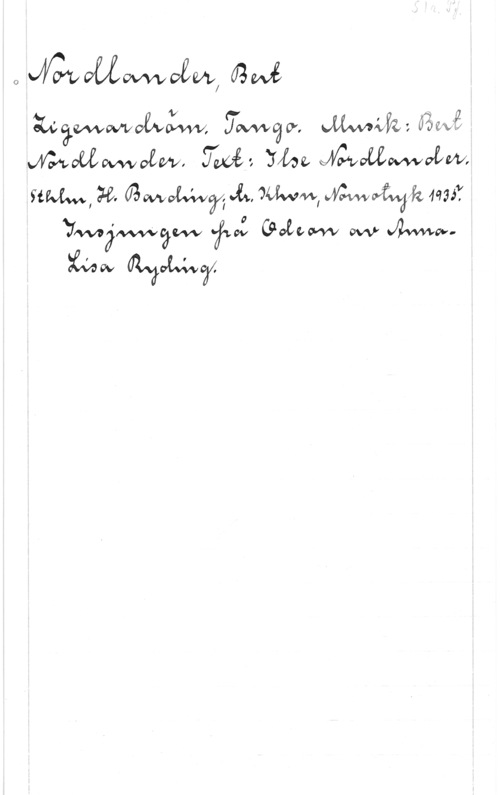 Nordlander, Bert
Zigenardröm. Tango. Musik: Bert
Nordlander. Text: Ilse Nordlander.
Sthlm, H. Barding; tr. Khvn, Nomotryk 1935.
Insjungen på Odeon av Anna-
Lisa Ryding.